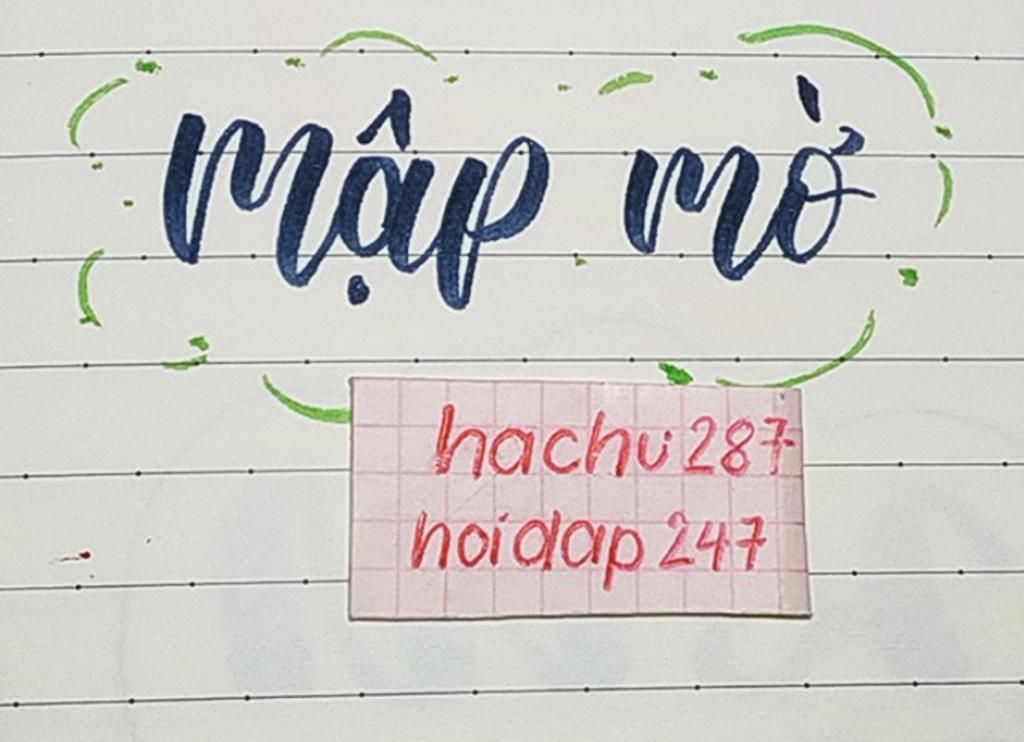 mập mờ
hachu287
hoidap247